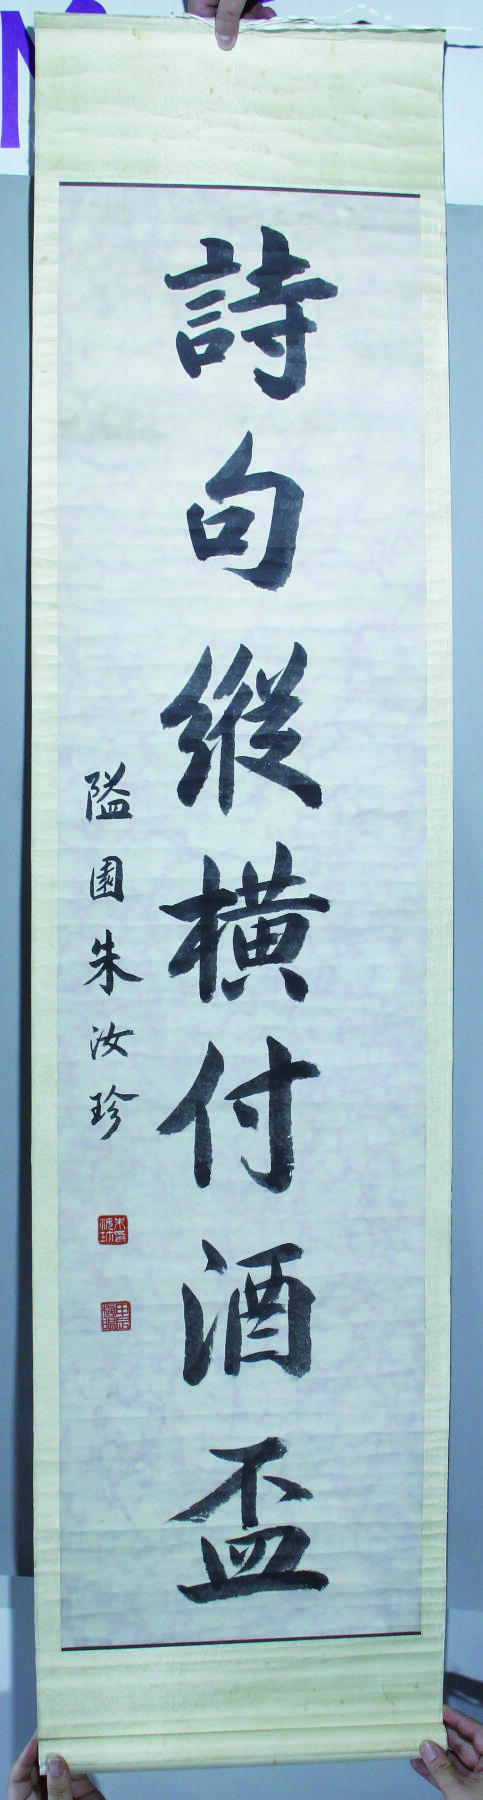 詩句縱橫付酒盃
隘園朱汝珍